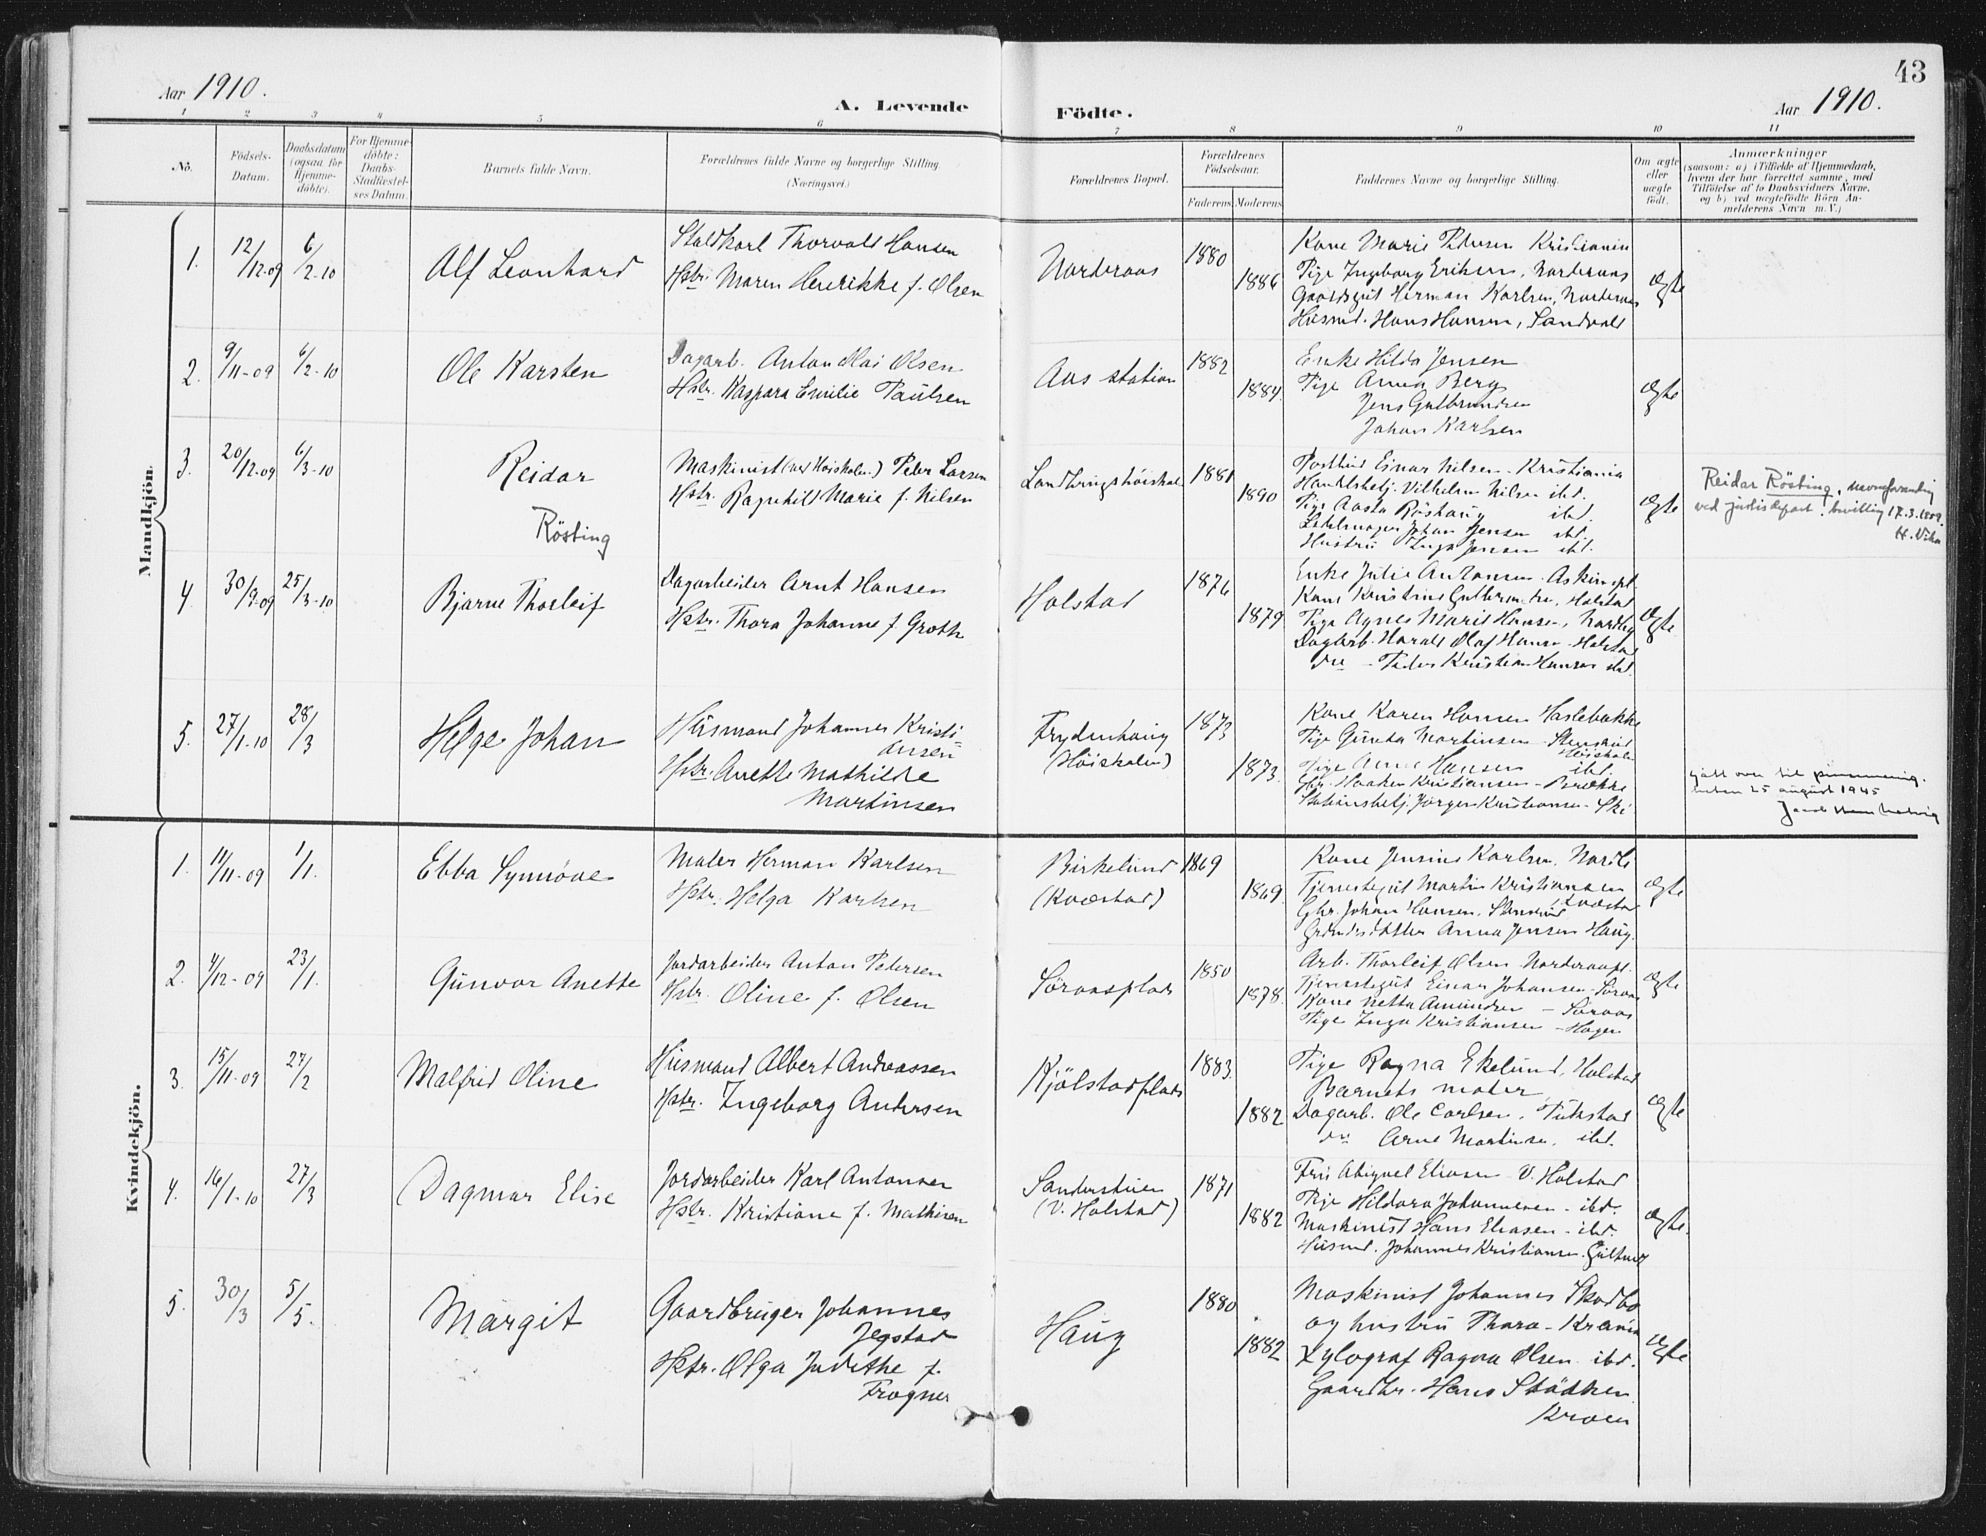 43
Aar 1910.
A. Levende Födte.
Aar 1910.
1 2 3 4 5 6 7 8 9 10 11
No.
Födsels-Datum.
Daabsdatum (ogsaa for Hjemme-döbte).
For Hjemme-döbte: Daabs-Stadfæstelses Datum.
Barnets fulde Navn.
Forældrenes fulde Navne og borgerlige Stilling. (Næringsvei.)
Forældrenes Bopæl.
Forældrenes Födselsaar.
Faderens Moderens
Faddernes Navne og borgerlige Stilling.
Om ægte eller uægte födt.
Anmærkninger
(saasom: a) i Tilfælde af Hjemmedaab, hvem der har forrettet samme, med Tilföielse af to Daabsvidners Navne, og b) ved uægtefödte Börn Anmelderens Navn m. V.)
Mandkjön.
1. 12/12-09 6/2-10 Alf Leonhard
Staldkarl Thorvald Hansen
Hstr. Maren Henrikke f. Olsen
Norderaas 1880 1886
Kone Marie Pedersen Kristiania
Pige Ingborg Eriksen, Norderaas
Gaardsgut Herman Karlsen, Norderaas
Husmd. Hans Hansen, Sandvold
Ægte
2. 9/11-09 6/2-10 Ole Karsten
Dagarb. Anton Olsen
Hstr. Kaspara Emilie Paulsen
Aas station 1882 1884
Enke Hilda Jensen
Pige Anna Berg
Jens Gulbrandsen
Johan Karlsen
Ægte
3. 20/12-09 6/3-10 Reidar
Rösting
Maskinist (ved Höiskolen) Peter Larsen
Hstr. Ragnhild Marie f. Nilsen
Landbrugshöiskol. 1881 1890
Postbud Einar Nilsen - Kristiania
Handelsbetj. Vilhelm Nilsen ibd.
Pige Aasta Röstang ibd.
Sadelmager Johan Jensen ibd.
Hustru Inga Jensen ibd.
Ægte
Reidar Rösting, navneforandring
ved justisdepart. bevilling 17.3.
4. 30/9-09 25/3-10 Bjarne Thorleif
Dagarbeider Arnt Hansen
Hstr. Thora Johanne f. Groth
Holstad 1876 1879
Enke Julie Antonsen - Askimspl.
Kone Kristine Gulbrandsen, Holstad
Pige Agnes Marie Hansen, Nordby
Dagarb. Harald Olaf Hansen - Holstad
do - Peder Kristian Hansen ibd.
Ægte
5. 27/1-10 28/3 Helge Johan
Husmand Johannes Kristiansen
Hstr. Anette Mathilde
Martinsen
Frydenhaug
(Höiskolen) 1873 1873.
Kone Karen Hansen Haslebakke
Pige Gunda Martinsen - Stensrud
Höiskolen
Pige Anna Hansen ibd.
Gbr. Haaken Kristiansen - Brække
Stationsbetj. Jörgen Kristiansen - Ski
gått over til pinsemenig-
heten 25 august 1945
Kvindekjön.
1. 11/11-09 1/1. Ebba Synnöve
Maler Herman Karlsen
Hstr. Helga Karlsen
Birkelund
(Kvæstad) 1869 1869.
Kone Jensine Karlsen, Nordb
Tjenestegut Martin Kristiansen
Kvæstad
Gbr. Johan Hansen, Stensrud
Grdmdsdatter Anna Jensen Haug.
Ægte
2. 4/12-09 23/1. Gunvor Anette
Jordarbeider Anton Pedersen
Hstr. Oline f. Olsen
Söraasplads 1850 1878.
Arb. Thorleif Olsen Norderaaspl.
Tjenestegut Einar Johansen - Söraas
Kone Netta Amundsen - Söraas
Pige Inga Kristiansen - Hagen
Ægte
3. 15/11-09 27/2 Malfrid Oline
Husmand Albert Andreassen
Hstr. Ingeborg Andersen
Kjölstadplads 1883. 1882
Pige Ragna Ekelund, Holstad
Barnets moder
Dagarb. Ole Carlsen, Tukstad
do Arne Martinsen, ibd.
Ægte
4. 16/1-10 27/3 Dagmar Elise
Jordarbeider Karl Antonsen
Hstr. Kristiane f. Mathisen
Sanderstuen
(V. Holstad) 1871 1882
Fru Abigael Eliasen V. Holstad
Pige Hildora Johannesen - ibd.
Maskinist Hans Eliasen - ibd.
Husmd. Johannes Kristiansen
Ægte.
5. 30/3 5/5. Margit
Gaardbruger Johannes
Jegstad
Hstr. Olga Judithe f.
Frogner
Haug 1880 1882
Maskinist Johannes Skodbo
og hustru Thora - Krania
Xylograf Ragna Olsen ibd.
Gaardbr. Hans Stödken
Kroen
Ægte